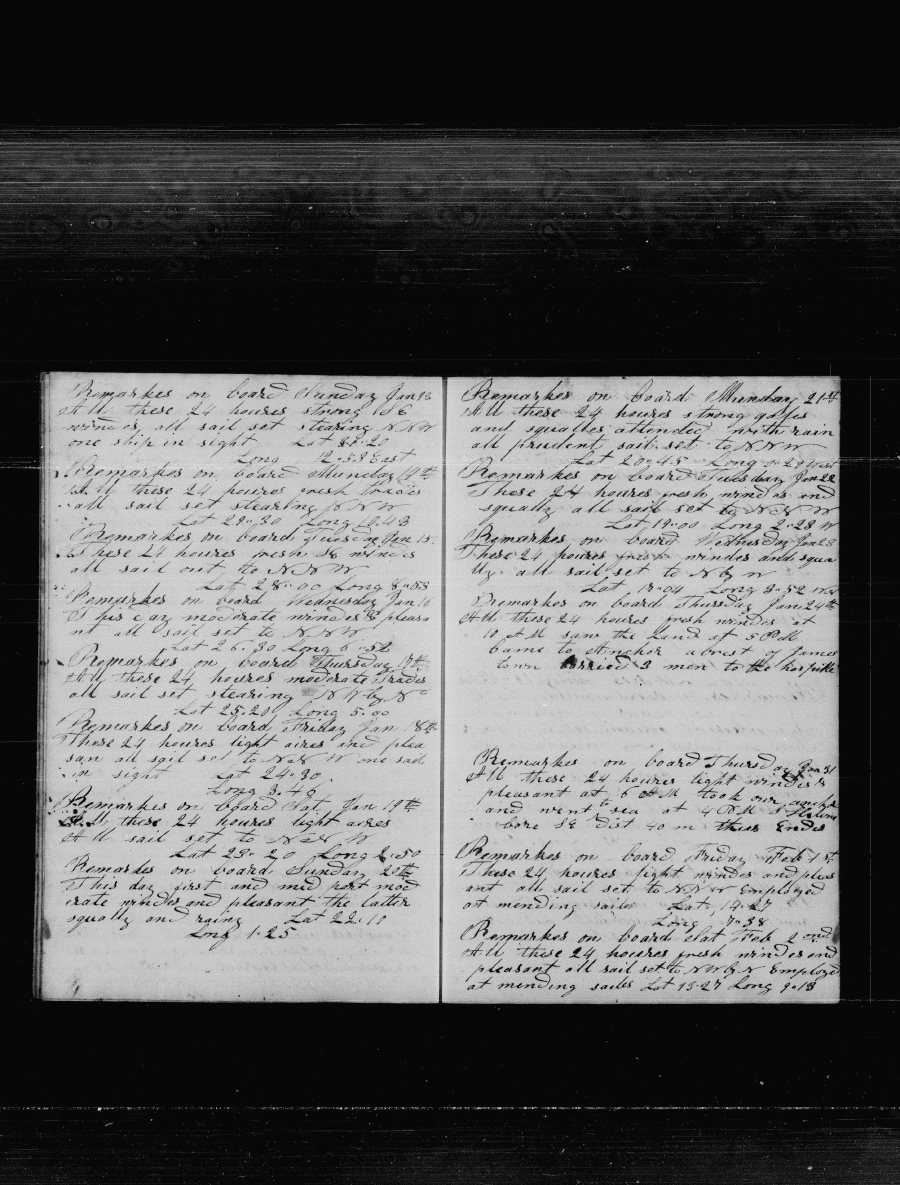 Remarkes on board Sunday Jan 13
All these 24 houres strong S E
windes, all sail set stearing N N W
one ship in sight Lat 31"20
Long 12"53 East
Remarkes on board Munday 14th
All these 24 houres fresh trades
all sail set stearing N N W
Lat 29"30 Long 10"43
Remarkes on board Tuesday Jan 15
These 24 houres fresh SE windes
all sail out to N N W
Lat 28"00 Long 8"53
Remarkes on board Wednesday Jan 16
This day moderate windes & pleasa
nt all sail set to N N W
Lat 26"30 Long 6"56
Remarkes on board Thursday 17th
All these 24 houres moderate trades
all sail set stearing N W by N
Lat 25"20 Long 5"00
Remarkes on board Friday Jan 18th
These 24 houres light aires and plea
san all sail set to N N W one sail
in sight Lat 24"30
Long 3"48
Remarkes on board Sat, Jan 19th
All these 24 houres light aires
All sail set to N N W
Lat 23"20 Long 2"50
Remarkes on board Sunday 20th
This day first and mid port mod
erate windes and pleasant the latter
squally and rainy Lat 22"10
Long 1"25
Remarkes on board Munday 21st
All these 24 houres strong gales
and squalles attended with rain
all prudent sail set to N N W
Lat 20"45 Long 0"29 West
Remarkes on board Tuesday Jan 22
These 24 houres fresh windes and
squally all sail set to N N W
Lat 19"00 Long 2"28 W
Remarkes on board Wednusday Jan 23
These 24 houres fresh windes and squa
lly all sail set to N by W
Lat 17"04 Long 3"52 west
Remarkes on board Thursday Jan 24th
All these 24 houres fresh windes at
10 AM saw the Land at 5 PM
Came to Anchor abrest of James
town carried 3 men to the hospitle
Remarkes on board Thursday Jan 31
All these 24 houres light windes &
pleasant at 6 AM took our anchor
and went to sea at 4 PM St Helena
bore SE Dist 40 m thus Endes
Remarkes on board Friday Feb 1st
These 24 houres light windes and pleas
ant all sail set to N N W Employed
at mending sailes Lat, 14"27
Long 7"38
Remarkes on board Sat Feb 2ond
All these 24 houres fresh windes and
pleasant all sail set to N W by N Employed
at mending sailes Lat 13"27 Long 9"18